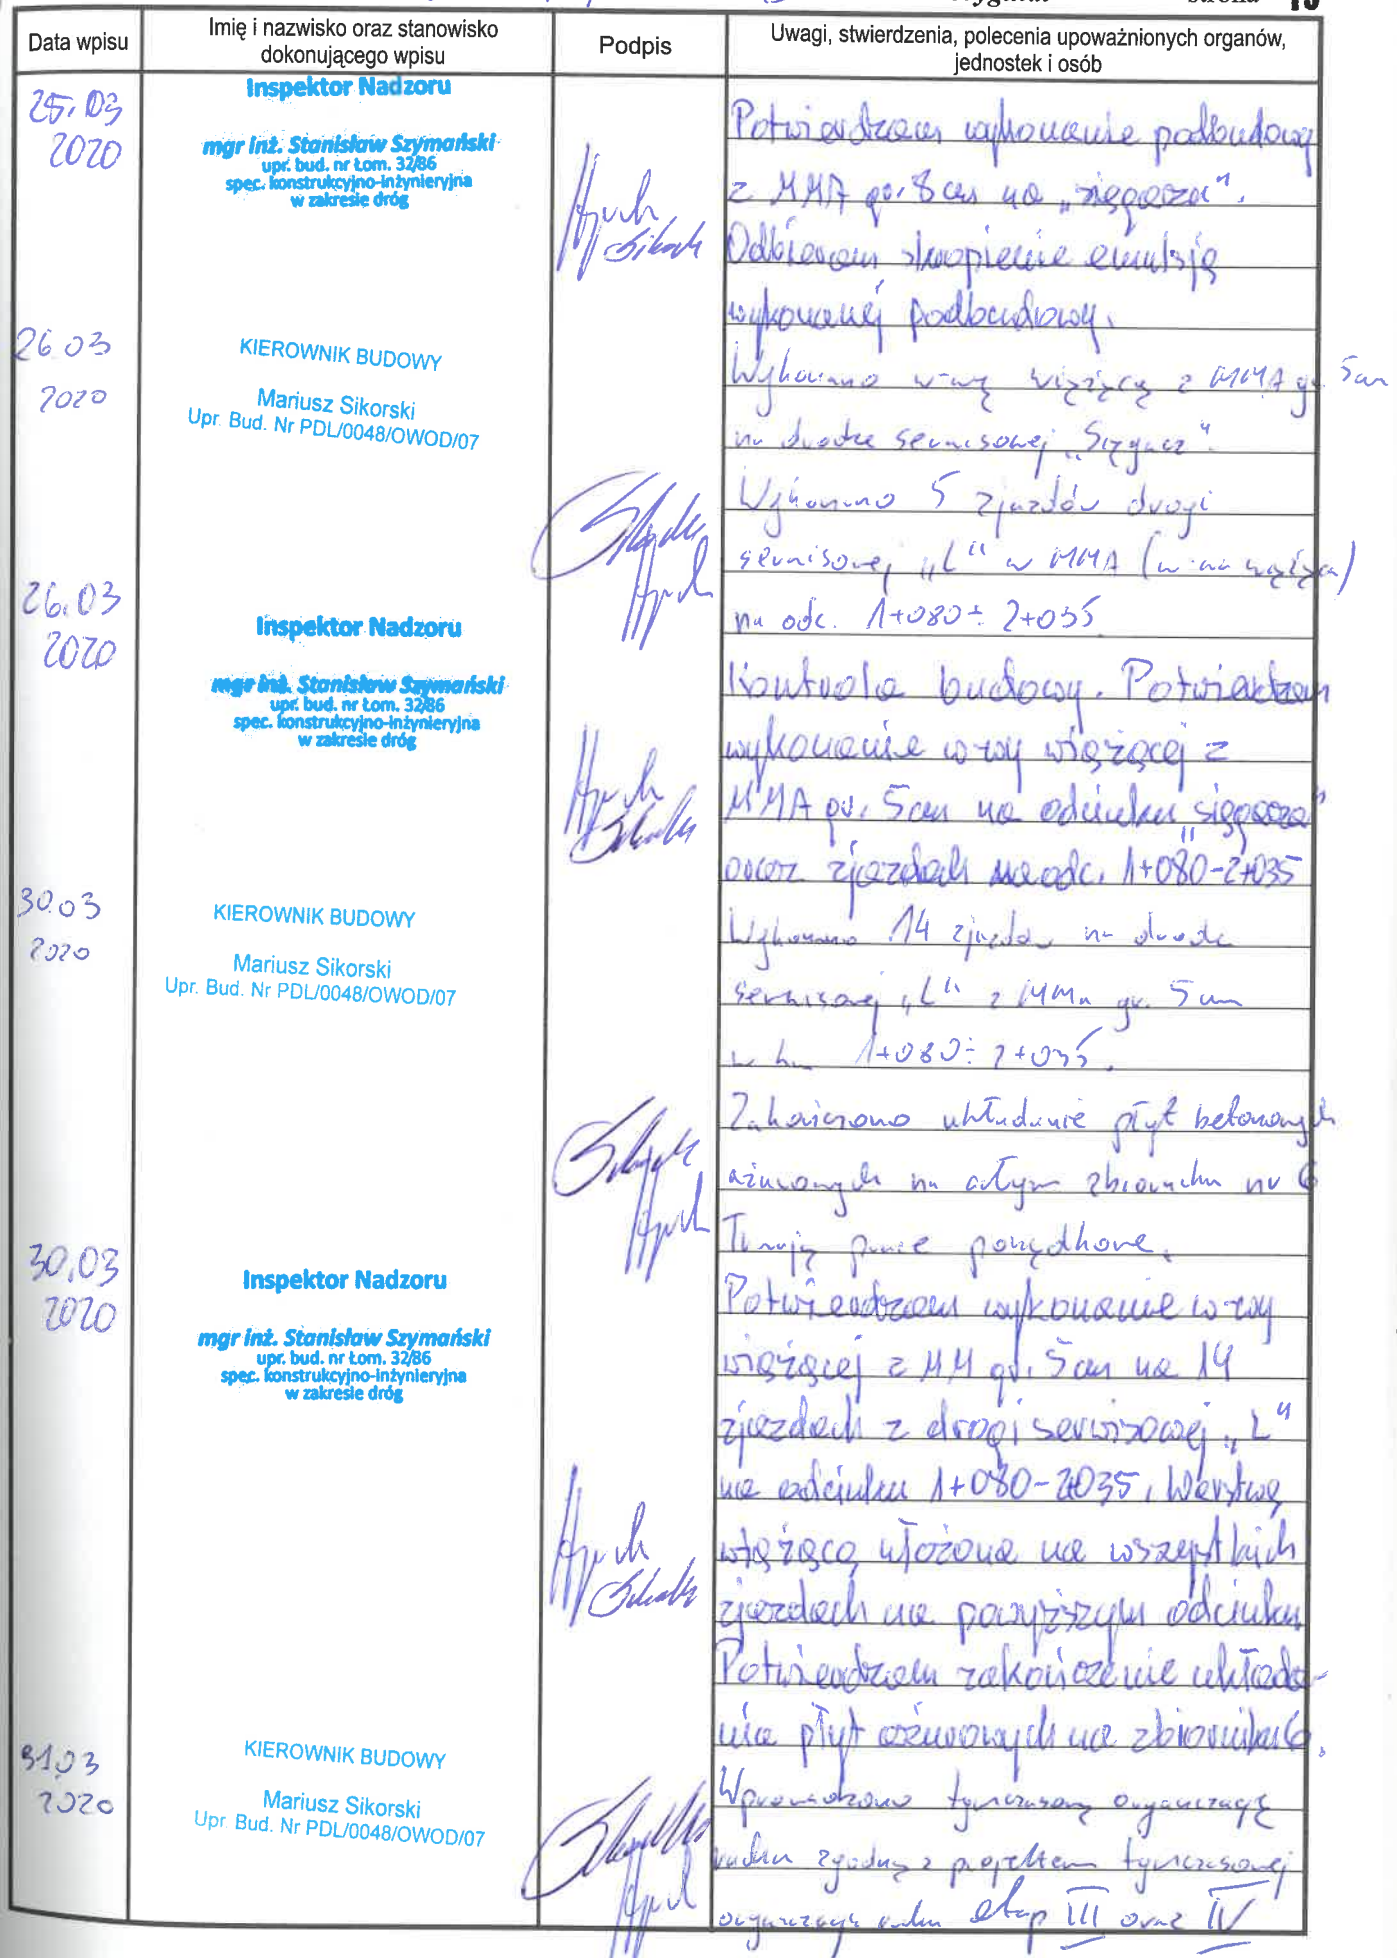 strona 15
Data wpisu
Imię i nazwisko oraz stanowisko
dokonującego wpisu
Podpis
Uwagi, stwierdzenia, polecenia upoważnionych organów,
jednostek i osób
25.03
2020
Inspektor Nadzoru
mgr inż. Stanisław Szymański
upr. bud. nr Łom. 32/86
spec. konstrukcyjno-inżynieryjna
w zakresie dróg
Potwierdzam wykonanie podbudowy
z MMA gr. 8 cm na „sięgacza".
Odbieram skropienie emulsją
wykonanej podbudowy.
26 03
2020
KIEROWNIK BUDOWY
Mariusz Sikorski
Upr. Bud. Nr PDL/0048/OWOD/07
Wykonano w-wę wiążącą z MMA gr. 5cm
na drodze serwisowej „Sięgacz".
Wykonano 5 zjazdów drogi
serwisowej „L" w MMA (w-wa wiążąca)
na odc. 1+080÷2+035
26.03
2020
Inspektor Nadzoru
mgr inż. Stanisław Szymański
upr. bud. nr Łom. 32/86
spec. konstrukcyjno-inżynieryjna
w zakresie dróg
Kontrola budowy. Potwierdzam
wykonanie w-wy wiążącej z
MMA gr. 5cm na odcinku „sięgacza"
oraz zjazdach na odc. 1+080-2+035
30.03
2020
KIEROWNIK BUDOWY
Mariusz Sikorski
Upr. Bud. Nr PDL/0048/OWOD/07
Wykonano 14 zjazdów na drodze
serwisowej „L" z MMA gr. 5 cm
w km 1+080÷2+035.
Zakończono układanie płyt betonowych
ażurowych na całym zbiorniku nr 6
Trwają prace porządkowe.
30.03
2020
Inspektor Nadzoru
mgr inż. Stanisław Szymański
upr. bud. nr Łom. 32/86
spec. konstrukcyjno-inżynieryjna
w zakresie dróg
Potwierdzam wykonanie w-wy
wiążącej z MM gr. 5 cm na 14
zjazdach z drogi serwisowej „L"
na odcinku 1+080-2+035. Warstwę
wiążącą ułożono na wszystkich
zjazdach na powyższym odcinku
Potwierdzam zakończenie układa-
nia płyt ażurowych na zbiorniku 6.
31.03
2020
KIEROWNIK BUDOWY
Mariusz Sikorski
Upr. Bud. Nr PDL/0048/OWOD/07
Wprowadzono tymczasową organizację
ruchu zgodną z projektem tymczasowej
organizacji ruchu etap III oraz IV